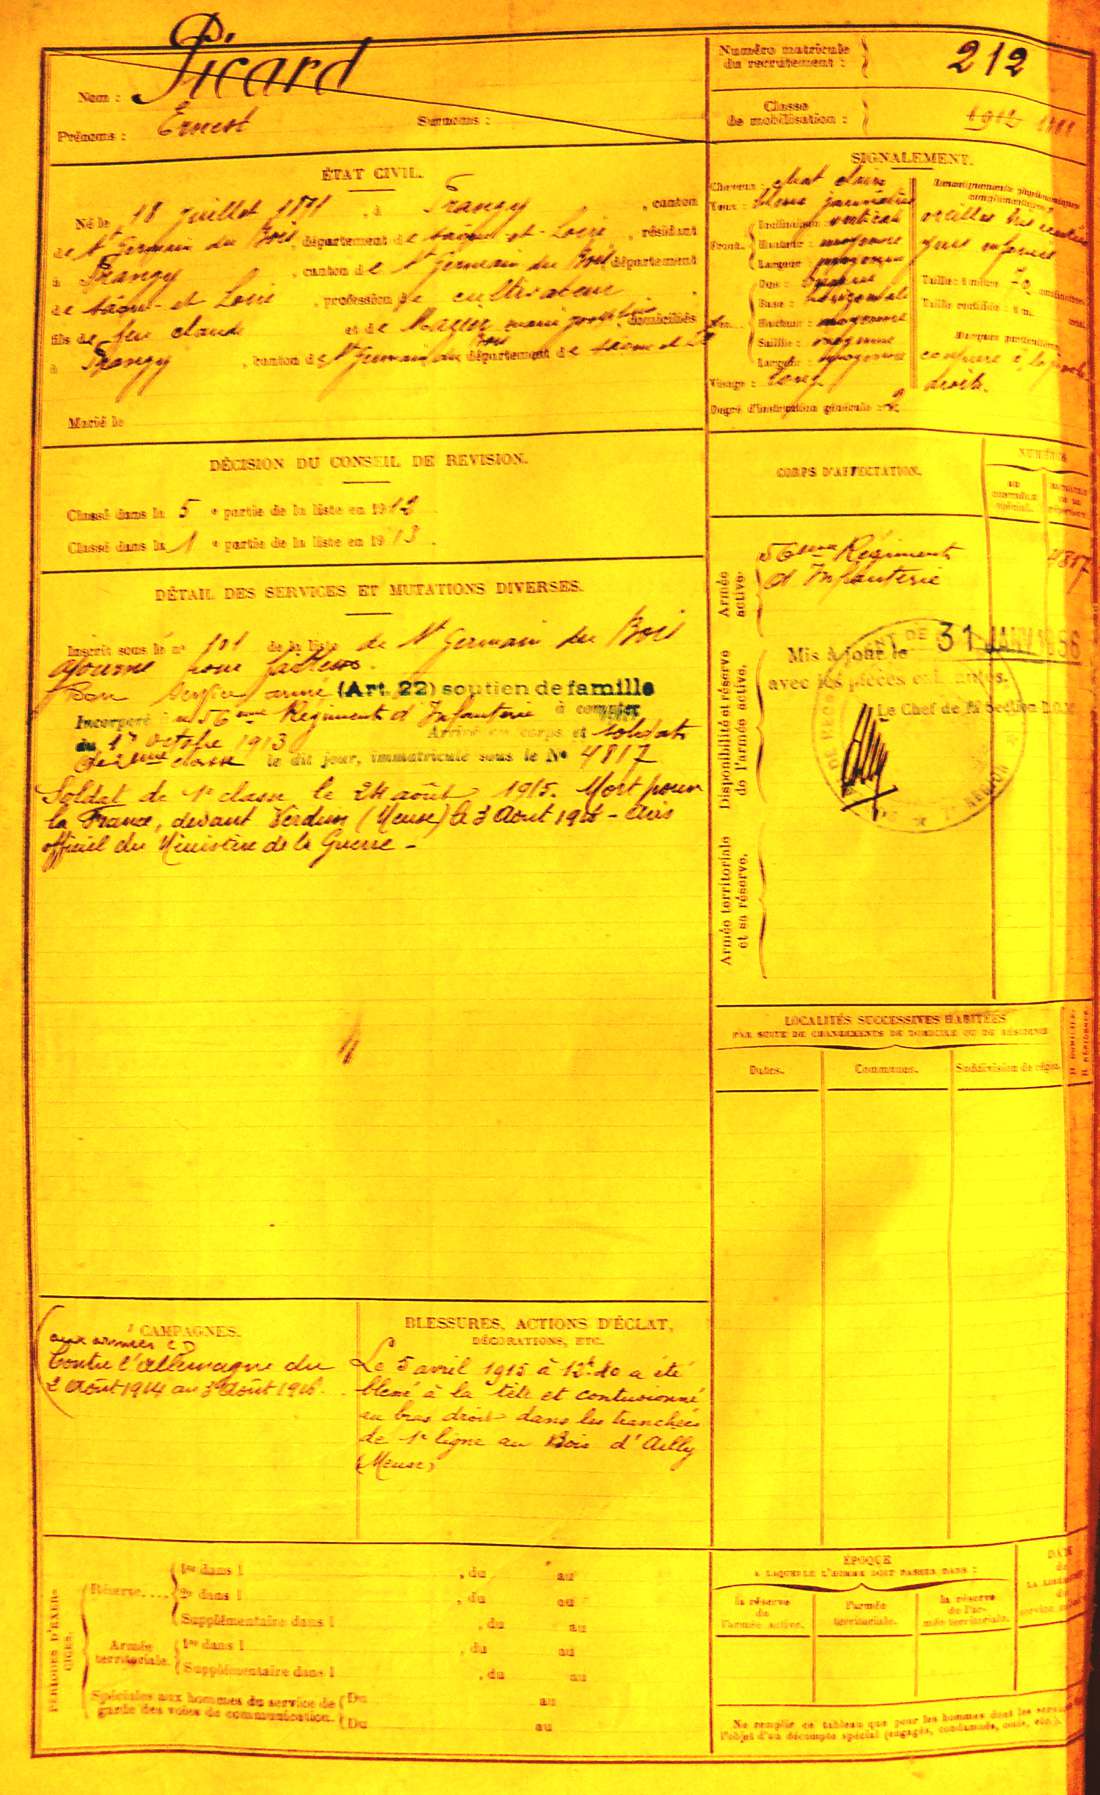 Picard
Nom :
Prénoms : Ernest Surnoms :
Numéro matricule
du recrutement : 212
Classe
de mobilisation : 1912 1911
ÉTAT CIVIL.
Né le 18 juillet , à Frangy , canton
de St Germain du Bois, département de Saône-et-Loire , résidant
à Frangy , canton de St Germain du Bois département
de Saône-et Loire , profession de cultivateur
fils de feu Claude et de domiciliés
à Frangy , canton de St Germain du Bois département de Saône et L
Marié le
SIGNALEMENT.
Cheveux : chat clairs
Yeux :
Front. Inclinaison : vertical
Hauteur : moyenne
Largeur : moyenne
Nez. Dos :
Base : horizontale
Hauteur : moyenne
Saillie : moyenne
Largeur : moyenne
Visage : long
Degré d'instruction générale : 2
Renseignements physionomiques
complémentaires :
oreilles
Taille : 1 mètre 70 centimètres.
Taille rectifiée : 1 m. cent.
Marques particulières :
droite.
DÉCISION DU CONSEIL DE REVISION.
Classé dans la 5 e partie de la liste en 1912
Classé dans la 1 e partie de la liste en 1913.
DÉTAIL DES SERVICES ET MUTATIONS DIVERSES.
Inscrit sous le n° 101 de la liste de St Germain du Bois
ajourné pour faiblesse.
Bon service armé (Art. 22) soutien de famille
Incorporé au 56eme Régiment d'Infanterie à compter
du 1er octobre 1913 Arrivé au corps et soldat
de 2eme classe le dit jour, immatriculé sous le N° 4817
Soldat de 1e classe le 24 août 1915. Mort pour
la France, devant Verdun (Meuse) le 3 Août 1916 - avis
officiel du Ministère de la Guerre -
CORPS D'AFFECTATION.
NUMÉROS
DU
CONTRÔLE
spécial.
Armée
active.
56eme Régiment
d'Infanterie
4817
Disponibilité et réserve
de l'armée active.
Mis à jour le 31 JANV 1936
avec les pièces
Le Chef de la Section
Armée territoriale
et sa réserve.
LOCALITÉS SUCCESSIVES HABITÉES
PAR SUITE DE CHANGEMENTS DE DOMICILE OU DE RÉSIDENCE
Dates. Communes. Subdivision de région.
D. DOMICILE.
R. RÉSIDENCE.
CAMPAGNES.
aux armées
Contre l'Allemagne du
2 Août 1914 au 3 Août 1916.
BLESSURES, ACTIONS D'ÉCLAT,
DÉCORATIONS, ETC.
Le 5 avril 1915 à a été
blessé à la tête et contusionné
au bras droit dans les tranchées
de 1e ligne au Bois d'Ailly
(Meuse)
PÉRIODES D'EXERCICES.
Réserve.... 1re dans l , du au
2e dans l , du au
Supplémentaire dans l , du au
Armée
territoriale. 1re dans l , du au
Supplémentaire dans l , du au
Spéciales aux hommes du service de
garde des voies de communication. Du au
Du au
ÉPOQUE
À LAQUELLE L'HOMME DOIT PASSER DANS :
la réserve
de
l'armée active.
l'armée
territoriale.
la réserve
de l'ar-
mée territoriale.
DATE
de
Ne remplir ce tableau que pour les hommes dont les services
l'objet d'un décompte spécial (engagés, condamnés, omis, etc.).